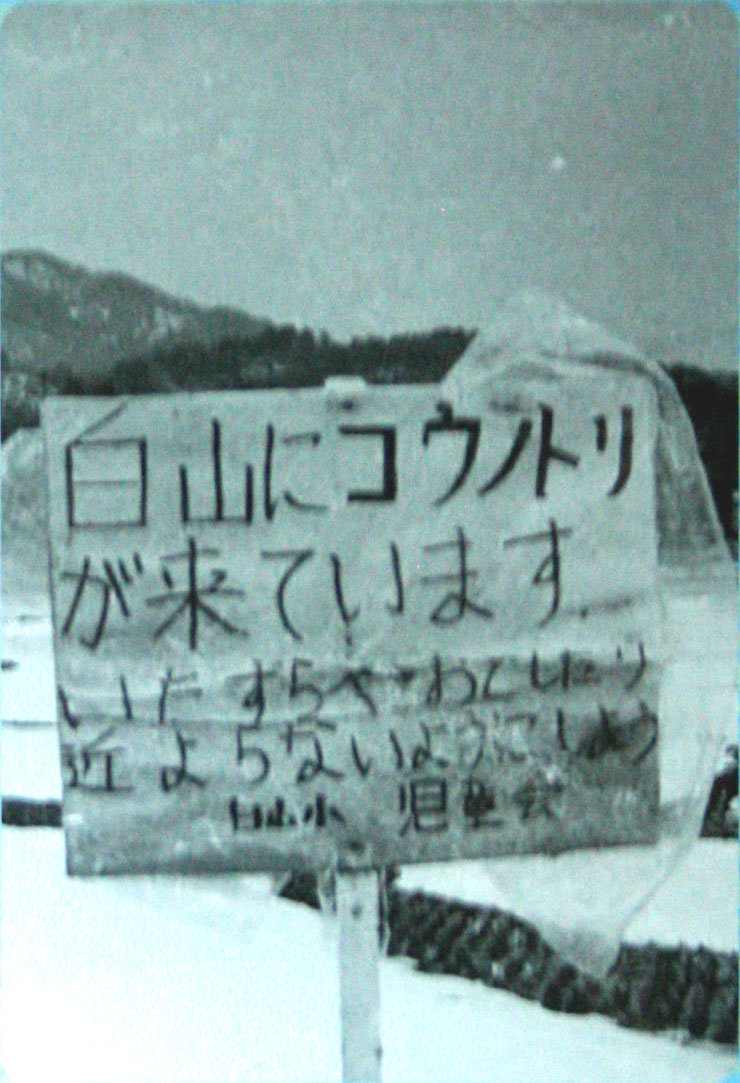 白山にコウノトリ
が来ています
いたずらや・おどしたり
近よらないようにしよう
白山小 児童会